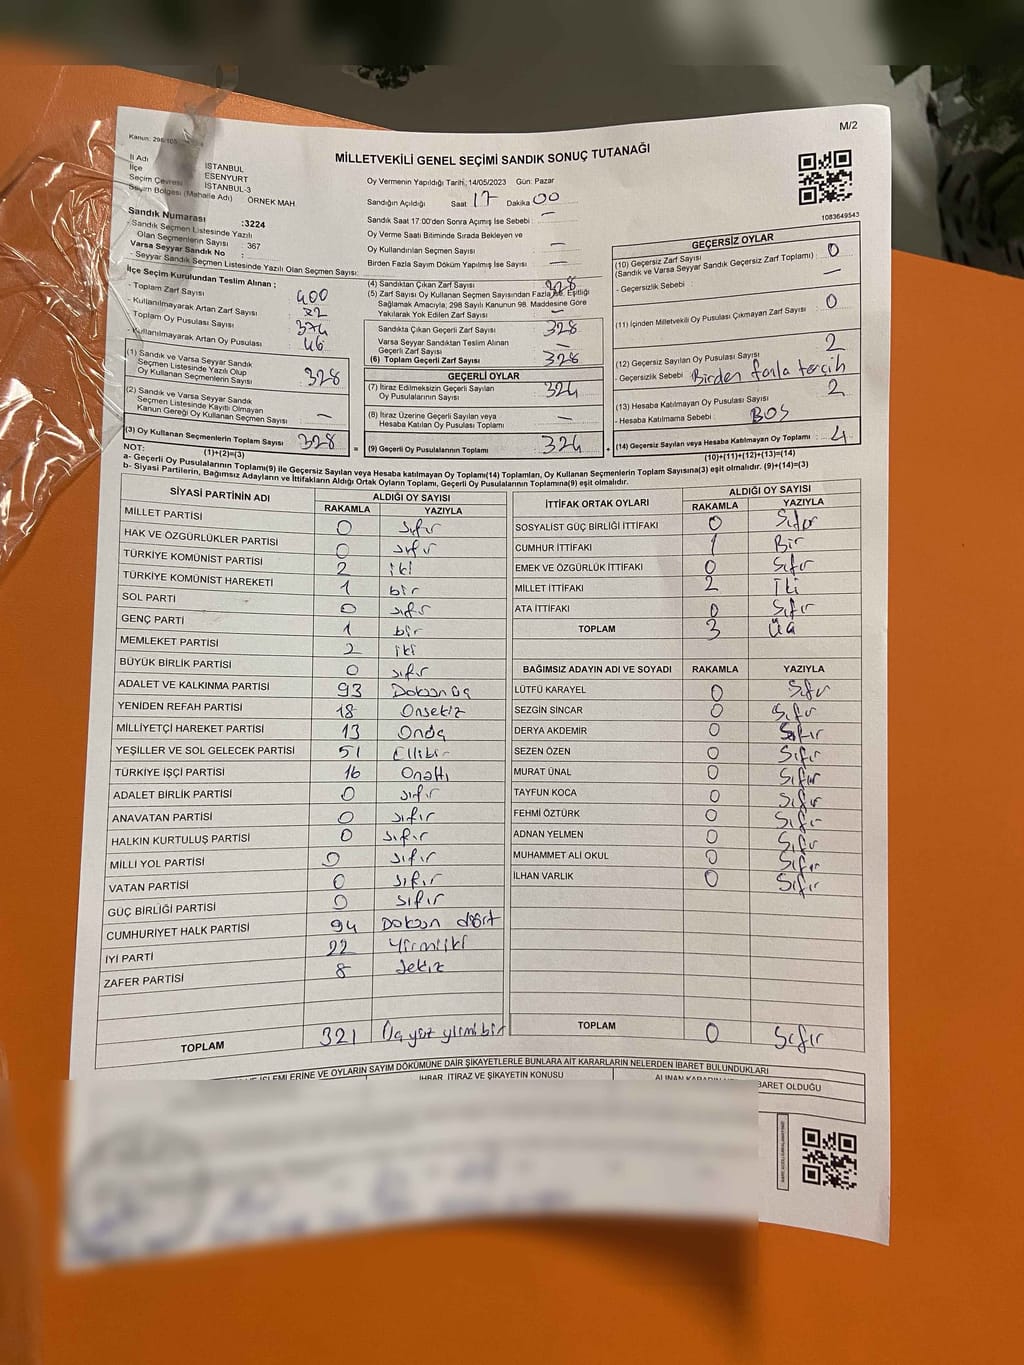 Kanun: 298/105
M/2
MİLLETVEKİLİ GENEL SEÇİMİ SANDIK SONUÇ TUTANAĞI
İl Adı : İSTANBUL
İlçe : ESENYURT
Seçim Çevresi : İSTANBUL-3
Seçim Bölgesi (Mahalle Adı) : ÖRNEK MAH
Oy Vermenin Yapıldığı Tarih: 14/05/2023 Gün: Pazar
Sandığın Açıldığı Saat 17 Dakika 00
Sandık Saat 17:00'den Sonra Açımış İse Sebebi : —
Oy Verme Saati Bitiminde Sırada Bekleyen ve
Oy Kullandırılan Seçmen Sayısı : —
Birden Fazla Sayım Döküm Yapılmış İse Sayısı : —
1083649543
Sandık Numarası :3224
- Sandık Seçmen Listesinde Yazılı
Olan Seçmenlerin Sayısı : 367
Varsa Seyyar Sandık No :
- Seyyar Sandık Seçmen Listesinde Yazılı Olan Seçmen Sayısı:
İlçe Seçim Kurulundan Teslim Alınan ;
- Toplam Zarf Sayısı : 400
- Kullanılmayarak Artan Zarf Sayısı : 72
- Toplam Oy Pusulası Sayısı : 374
- Kullanılmayarak Artan Oy Pusulası : 46
(1) Sandık ve Varsa Seyyar Sandık
Seçmen Listesinde Yazılı Olup
Oy Kullanan Seçmenlerin Sayısı : 328
(2) Sandık ve Varsa Seyyar Sandık
Seçmen Listesinde Kayıtlı Olmayan
Kanun Gereği Oy Kullanan Seçmen Sayısı : —
(3) Oy Kullanan Seçmenlerin Toplam Sayısı : 328
(1)+(2)=(3)
(4) Sandıktan Çıkan Zarf Sayısı : 328
(5) Zarf Sayısı Oy Kullanan Seçmen Sayısından Fazla ise, Eşitliği
Sağlamak Amacıyla; 298 Sayılı Kanunun 98. Maddesine Göre
Yakılarak Yok Edilen Zarf Sayısı : —
Sandıkta Çıkan Geçerli Zarf Sayısı : 328
Varsa Seyyar Sandıktan Teslim Alınan
Geçerli Zarf Sayısı : —
(6) Toplam Geçerli Zarf Sayısı : 328
GEÇERLİ OYLAR
(7) İtiraz Edilmeksizin Geçerli Sayılan
Oy Pusulalarının Sayısı : 324
(8) İtiraz Üzerine Geçerli Sayılan veya
Hesaba Katılan Oy Pusulası Toplamı : —
= (9) Geçerli Oy Pusulalarının Toplamı : 324
GEÇERSİZ OYLAR
(10) Geçersiz Zarf Sayısı
(Sandık ve Varsa Seyyar Sandık Geçersiz Zarf Toplamı) : 0
- Geçersizlik Sebebi : —
(11) İçinden Milletvekili Oy Pusulası Çıkmayan Zarf Sayısı : 0
(12) Geçersiz Sayılan Oy Pusulası Sayısı : 2
- Geçersizlik Sebebi : Birden fazla tercih
(13) Hesaba Katılmayan Oy Pusulası Sayısı : 2
- Hesaba Katılmama Sebebi : BOS
+ (14) Geçersiz Sayılan veya Hesaba Katılmayan Oy Toplamı : 4
(10)+(11)+(12)+(13)=(14)
NOT:
a- Geçerli Oy Pusulalarının Toplamı(9) ile Geçersiz Sayılan veya Hesaba katılmayan Oy Toplamı(14) Toplamları, Oy Kullanan Seçmenlerin Toplam Sayısına(3) eşit olmalıdır. (9)+(14)=(3)
b- Siyasi Partilerin, Bağımsız Adayların ve İttifakların Aldığı Ortak Oyların Toplamı, Geçerli Oy Pusulalarının Toplamına(9) eşit olmalıdır.
SİYASİ PARTİNİN ADI ALDIĞI OY SAYISI
RAKAMLA YAZIYLA
MİLLET PARTİSİ 0 sıfır
HAK VE ÖZGÜRLÜKLER PARTİSİ 0 sıfır
TÜRKİYE KOMÜNİST PARTİSİ 2 iki
TÜRKİYE KOMÜNİST HAREKETİ 1 bir
SOL PARTİ 0 sıfır
GENÇ PARTİ 1 bir
MEMLEKET PARTİSİ 2 iki
BÜYÜK BİRLİK PARTİSİ 0 sıfır
ADALET VE KALKINMA PARTİSİ 93 Doksan üç
YENİDEN REFAH PARTİSİ 18 Onsekiz
MİLLİYETÇİ HAREKET PARTİSİ 13 Onüç
YEŞİLLER VE SOL GELECEK PARTİSİ 51 Ellibir
TÜRKİYE İŞÇİ PARTİSİ 16 Onaltı
ADALET BİRLİK PARTİSİ 0 sıfır
ANAVATAN PARTİSİ 0 sıfır
HALKIN KURTULUŞ PARTİSİ 0 sıfır
MİLLİ YOL PARTİSİ 0 sıfır
VATAN PARTİSİ 0 sıfır
GÜÇ BİRLİĞİ PARTİSİ 0 sıfır
CUMHURİYET HALK PARTİSİ 94 Doksan dört
İYİ PARTİ 22 Yirmiiki
ZAFER PARTİSİ 8 Sekiz
TOPLAM 321 Üç yüz yirmi bir
İTTİFAK ORTAK OYLARI ALDIĞI OY SAYISI
RAKAMLA YAZIYLA
SOSYALİST GÜÇ BİRLİĞİ İTTİFAKI 0 Sıfır
CUMHUR İTTİFAKI 1 Bir
EMEK VE ÖZGÜRLÜK İTTİFAKI 0 Sıfır
MİLLET İTTİFAKI 2 İki
ATA İTTİFAKI 0 Sıfır
TOPLAM 3 Üç
BAĞIMSIZ ADAYIN ADI VE SOYADI RAKAMLA YAZIYLA
LÜTFÜ KARAYEL 0 Sıfır
SEZGİN SİNCAR 0 Sıfır
DERYA AKDEMİR 0 Sıfır
SEZEN ÖZEN 0 Sıfır
MURAT ÜNAL 0 Sıfır
TAYFUN KOCA 0 Sıfır
FEHMİ ÖZTÜRK 0 Sıfır
ADNAN YELMEN 0 Sıfır
MUHAMMET ALİ OKUL 0 Sıfır
İLHAN VARLIK 0 Sıfır
TOPLAM 0 Sıfır
İŞLEMLERİNE VE OYLARIN SAYIM DÖKÜMÜNE DAİR ŞİKAYETLERLE BUNLARA AİT KARARLARIN NELERDEN İBARET BULUNDUKLARI
İHBAR, İTİRAZ VE ŞİKAYETİN KONUSU
ALINAN KARARIN İBARET OLDUĞU